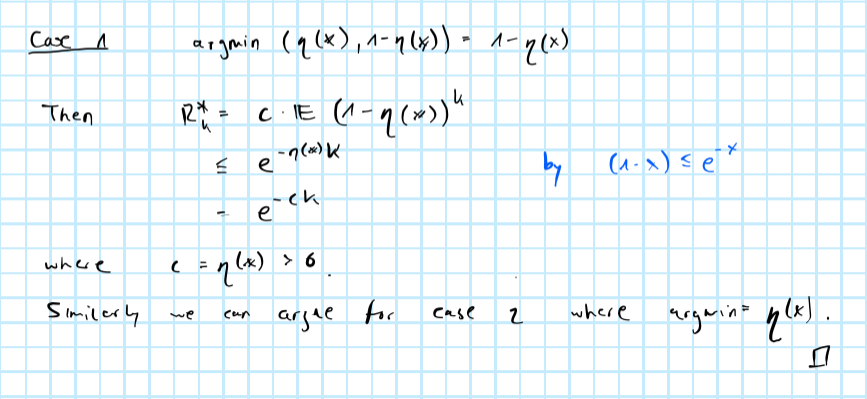 Case 1 argmin (η(x), 1-η(x)) = 1-η(x)
Then R*_k = c · 𝔼 (1-η(x))^k
≤ e^{-η(x)k} by (1-x) ≤ e^{-x}
= e^{-ck}
where c = η(x) > 0.
Similarly we can argue for case 2 where argmin = η(x).